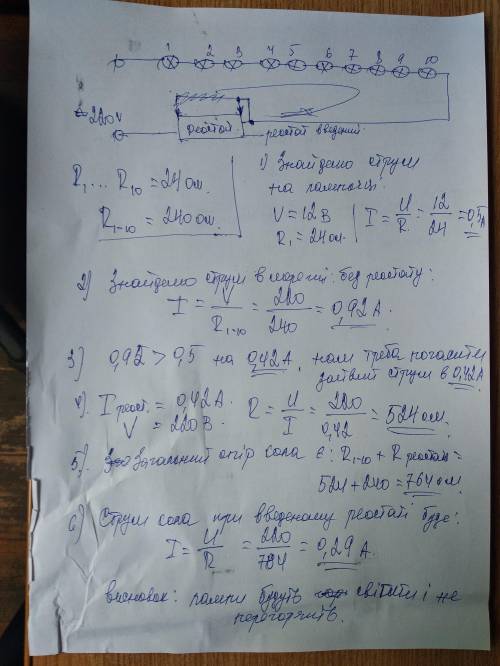 1 2 3 4 5 6 7 8 9 10
220 V
реостат
реостат введений
R1 ... R10 = 24 ом.
R1-10 = 240 ом.
1) Знайдемо струм
на лампочці.
V = 12 В
R1 = 24 ом.
I = U/R = 12/24 = 0,5 А
2) Знайдемо струм в мережі без реостату:
I = V/R1-10 = 220/240 = 0,92 А.
3) 0,92 > 0,5 на 0,42 А, нам треба погасити
зайвий струм в 0,42 А.
4) I реост. = 0,42 А.
V = 220 В.
R = U/I = 220/0,42 = 524 ом.
5) Загальний опір кола є: R1-10 + R реостат =
524 + 240 = 764 ом
6) Струм кола при введеному реостаті буде:
I = U/R = 220/764 = 0,29 А.
висновок: лампи будуть світити і не
перегорять.